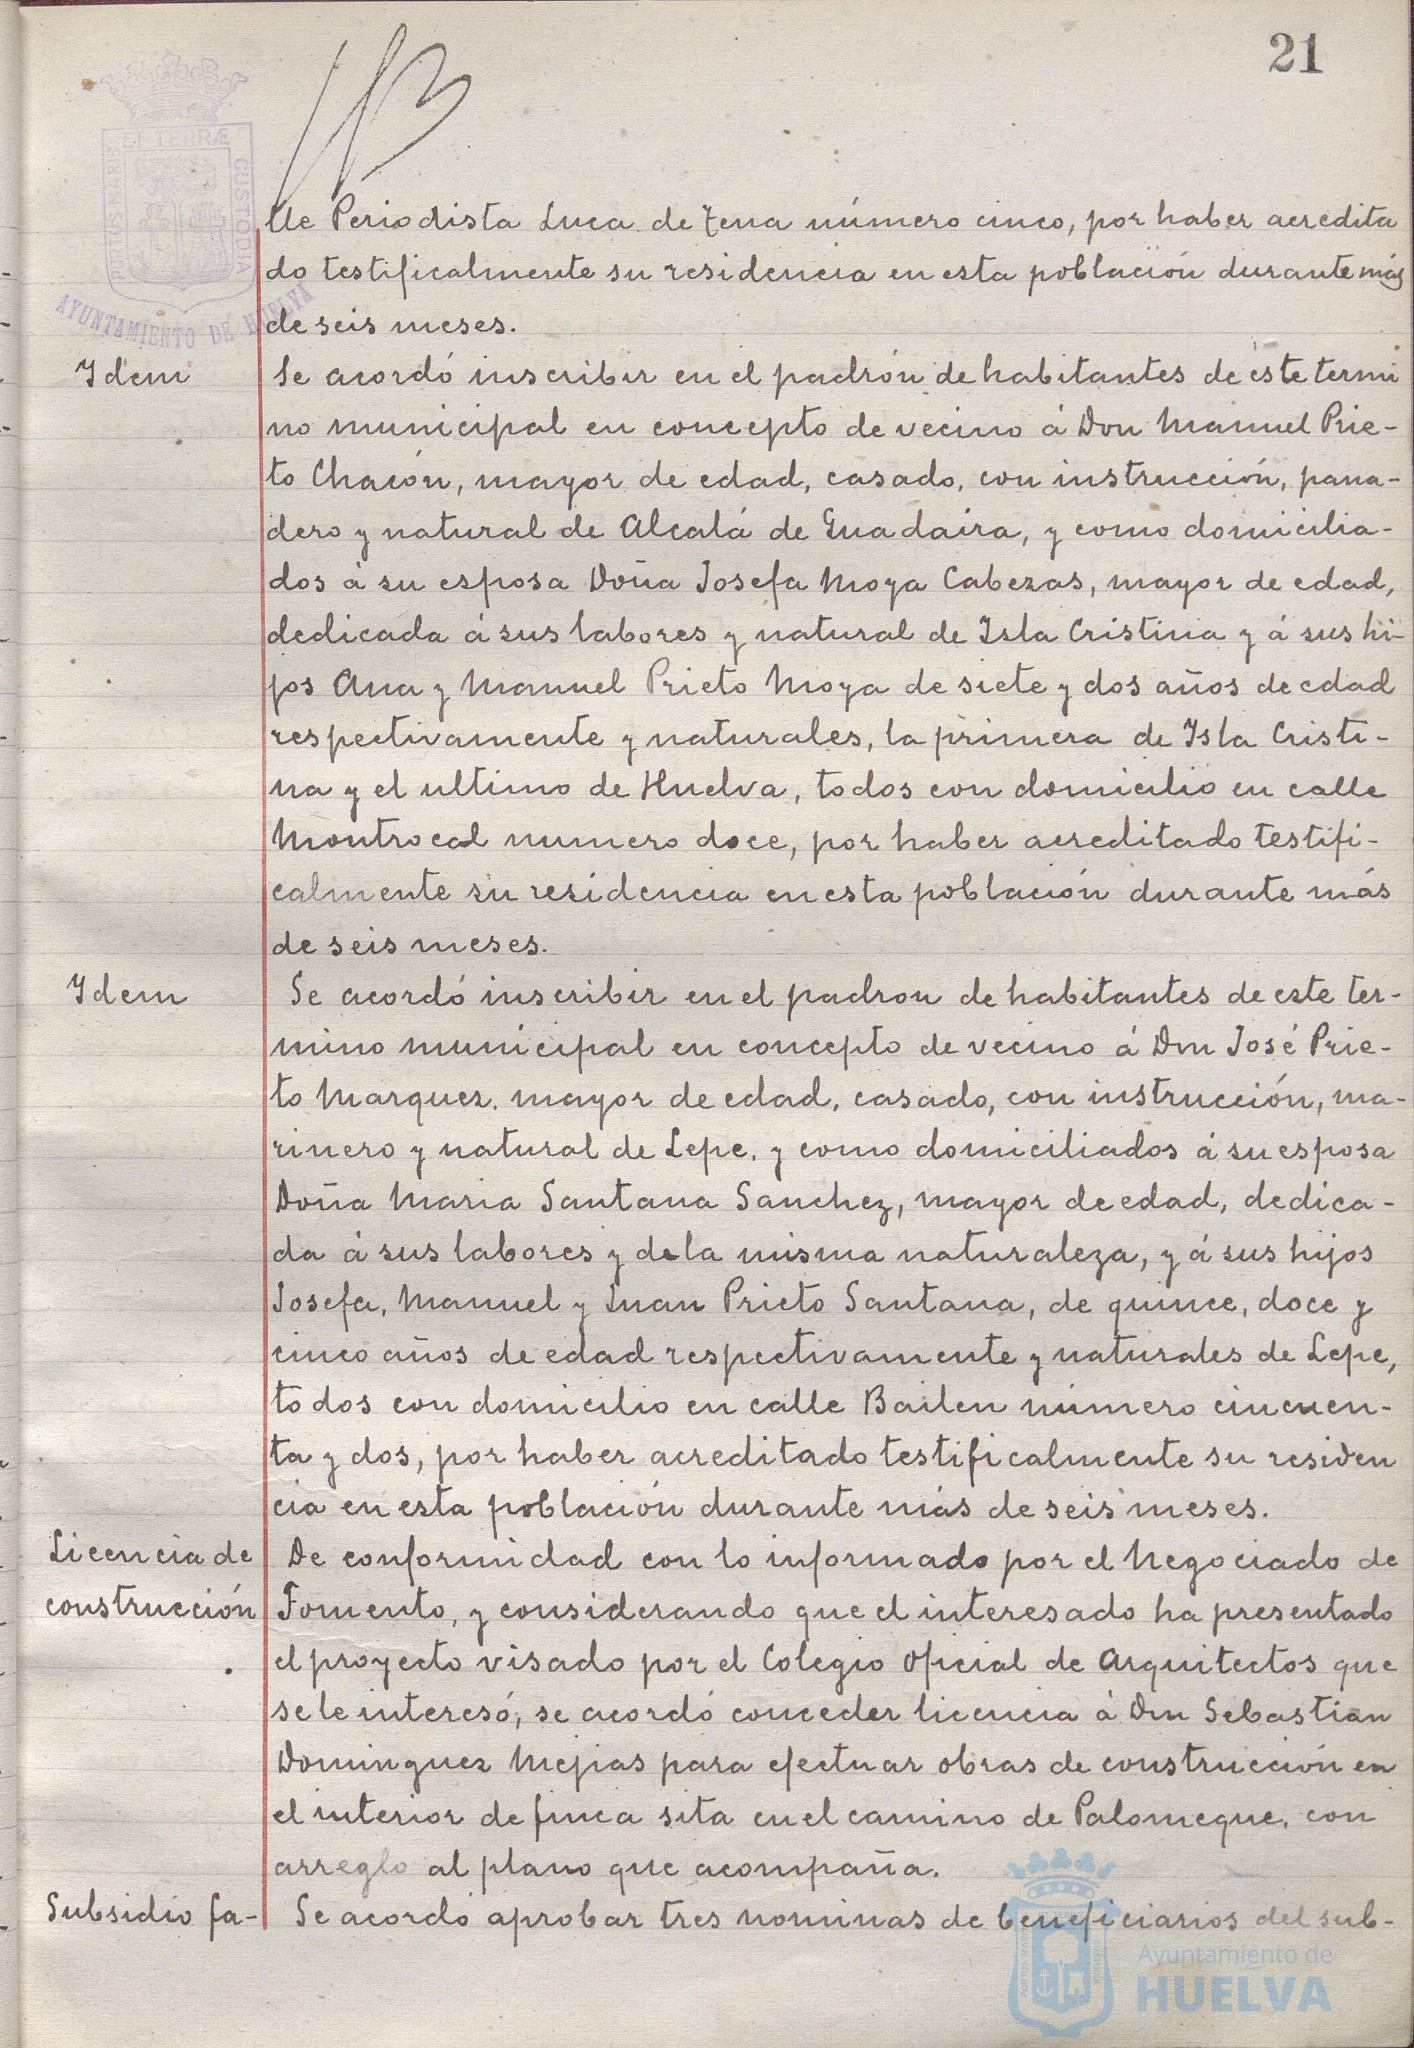 21
PORTUS MARIS ET TERRÆ CUSTODIA
AYUNTAMIENTO DE HUELVA
lle Periodista Luca de Tena número cinco, por haber acredita
do testificalmente su residencia en esta población durante más
de seis meses.
Idem
Se acordó inscribir en el padrón de habitantes de este termi
no municipal en concepto de vecino á Don Manuel Prie-
to Chacón, mayor de edad, casado, con instrucción, pana-
dero y natural de Alcalá de Guadaira, y como domicilia-
dos á su esposa Doña Josefa Moya Cabezas, mayor de edad,
dedicada á sus labores y natural de Isla Cristina y á sus hi-
jos Ana y Manuel Prieto Moya de siete y dos años de edad
respectivamente y naturales, la primera de Isla Cristi-
na y el ultimo de Huelva, todos con domicilio en calle
Montrocal numero doce, por haber acreditado testifi-
calmente su residencia en esta población durante más
de seis meses.
Idem
Se acordó inscribir en el padron de habitantes de este ter-
mino municipal en concepto de vecino á Don José Prie-
to Marquez, mayor de edad, casado, con instrucción, ma-
rinero y natural de Lepe, y como domiciliados á su esposa
Doña Maria Santana Sanchez, mayor de edad, dedica-
da á sus labores y de la misma naturaleza, y á sus hijos
Josefa, Manuel y Juan Prieto Santana, de quince, doce y
cinco años de edad respectivamente y naturales de Lepe,
todos con domicilio en calle Bailen número cincuen-
ta y dos, por haber acreditado testificalmente su residen
cia en esta población durante más de seis meses.
Licencia de
construcción
De conformidad con lo informado por el Negociado de
Fomento, y considerando que el interesado ha presentado
el proyecto visado por el Colegio Oficial de Arquitectos que
se le interesó, se acordó conceder licencia á Don Sebastian
Dominguez Mejias para efectuar obras de construcción en
el interior de finca sita en el camino de Palomeque, con
arreglo al plano que acompaña.
Subsidio fa-
Se acordó aprobar tres nominas de beneficiarios del sub-
Ayuntamiento de
HUELVA